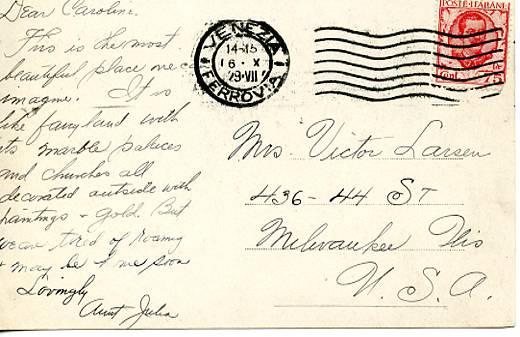 Dear Caroline.
This is the most
beautiful place we c
imagine. It is
like fairyland with
its marble palaces
and churches all
decorated outside with
paintings & Gold. But
we are tired of roaming
& may be home soon
Lovingly
Aunt Julia
VENEZIA
14-15
6 · X
29·VII
FERROVIA
POSTE·ITALIANE
Cent. 75
Mrs. Victor Larsen
436-44 ST
Milwaukee Wis
U.S.A.